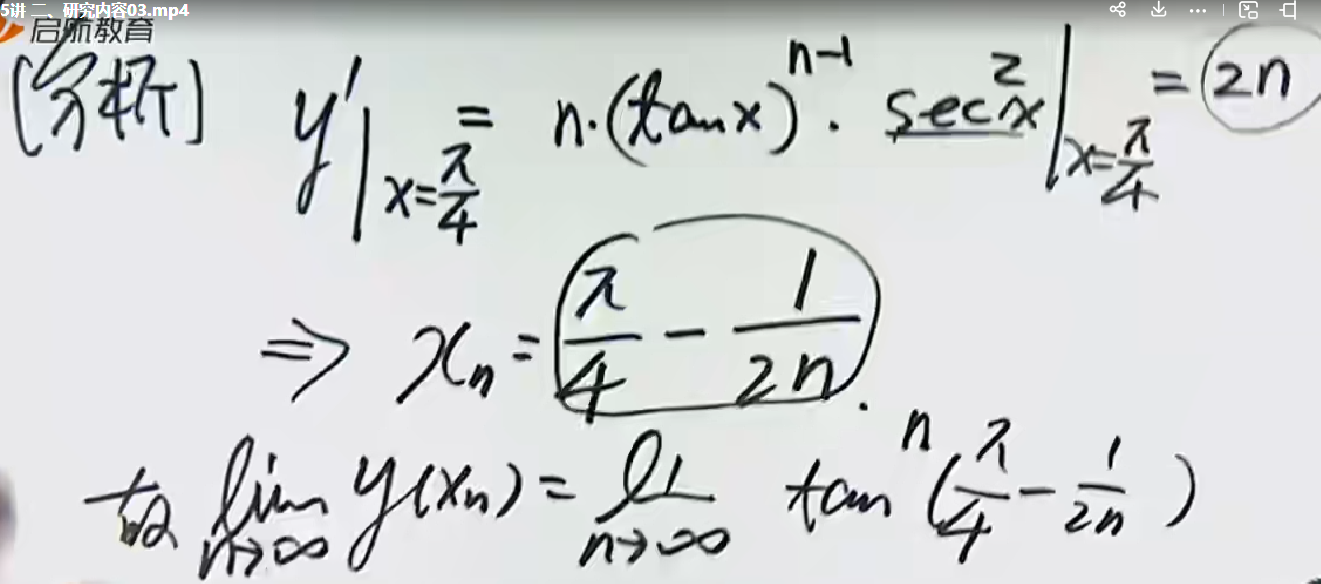 5讲 二、研究内容03.mp4
启航教育
[分析] y'|x=π/4 = n·(tanx)^(n-1)·sec²x|x=π/4 = 2n
⇒ xₙ = π/4 - 1/2n.
故 lim n→∞ y(xₙ) = li n→∞ tanⁿ(π/4 - 1/2n)